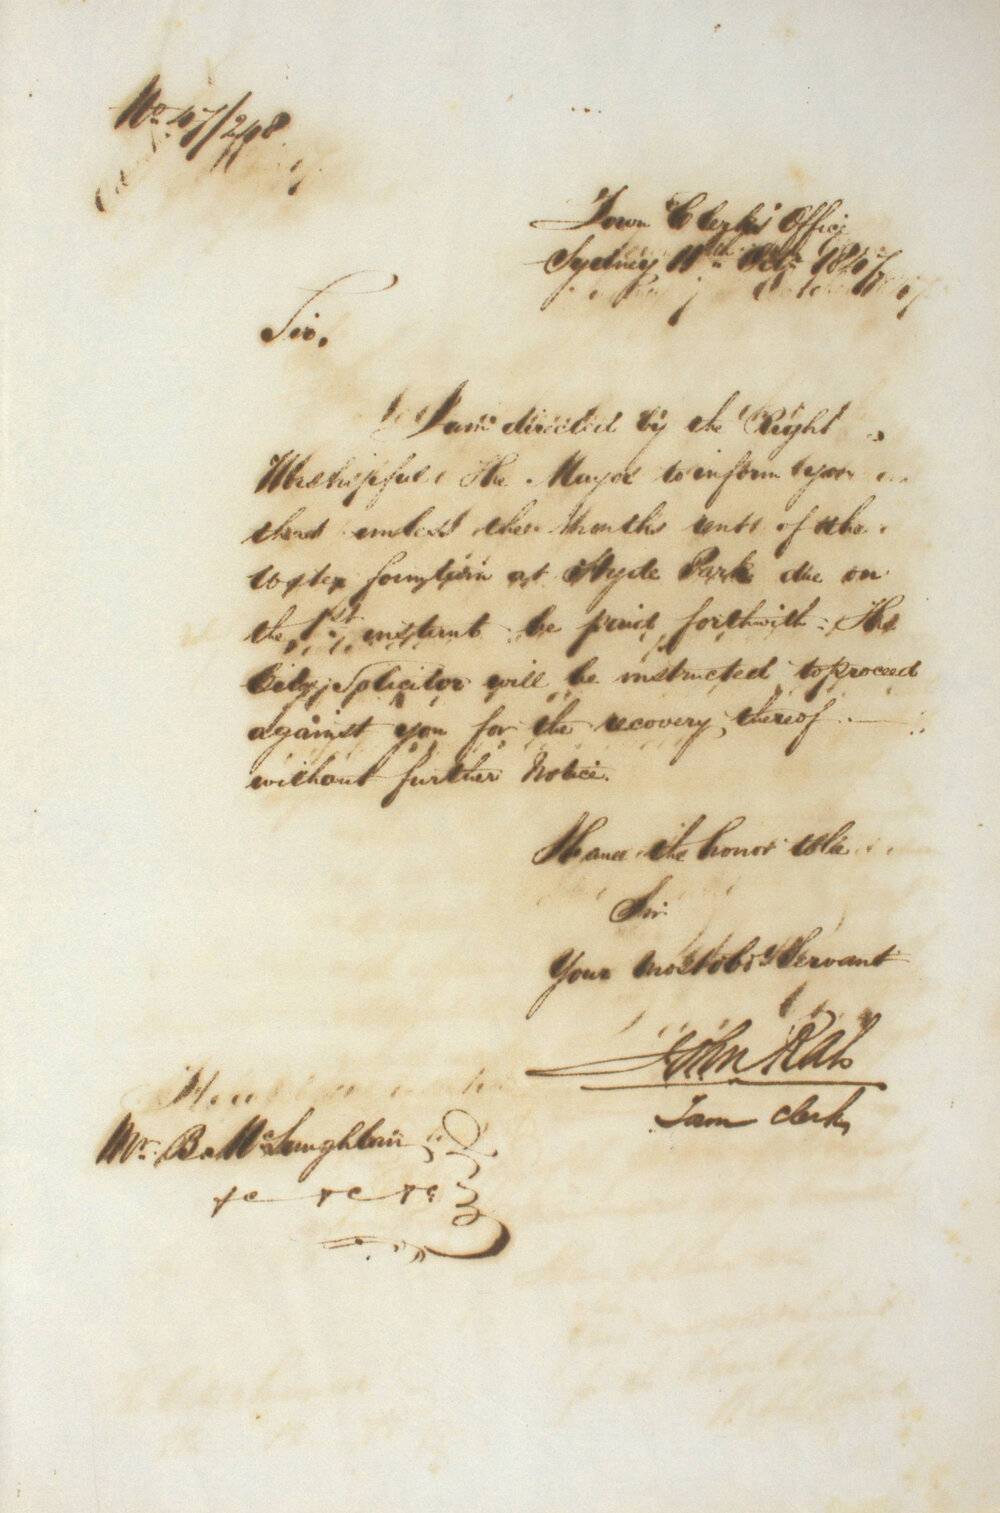 No. 47/248
Town Clerks' Office
Sydney 11th Octr. 1847
Sir,
I am directed by the Right
Worshipful The Mayor to inform you
that unless the months rent of the
water fountain at Hyde Park due on
the 1st instant be paid forthwith The
City Solicitor will be instructed to proceed
against you for the recovery thereof
without further Notice.
I have the honor to be
Sir
Your most obdt Servant
John Rae
Town Clerk
Mr. B. McLaughlin